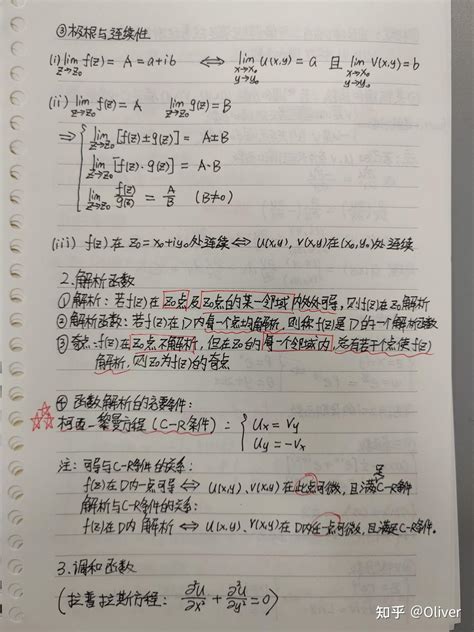 ③极根与连续性
(i) lim_{z→z₀} f(z) = A = a+ib ⟺ lim_{x→x₀, y→y₀} u(x,y) = a 且 lim_{x→x₀, y→y₀} v(x,y) = b
(ii) lim_{z→z₀} f(z) = A lim_{z→z₀} g(z) = B
⇒ { lim_{z→z₀} [f(z)±g(z)] = A±B
lim_{z→z₀} [f(z)·g(z)] = A·B
lim_{z→z₀} f(z)/g(z) = A/B (B≠0)
(iii) f(z)在 z₀=x₀+iy₀处连续⟺ u(x,y), v(x,y)在(x₀,y₀)处连续
2.解析函数
①解析:若f(z)在z₀点及z₀点的某一邻域内处处可导,则f(z)在z₀解析
②解析函数:若f(z)在D内每一点均解析,则称f(z)是D的一个解析函数
③奇点:f(z)在z₀点不解析,但在z₀的每一个邻域内,总有若干个点使f(z)
解析,则z₀为f(z)的奇点
④函数解析的必要条件:
柯西-黎曼方程(C-R条件): { Ux = Vy
Uy = -Vx
注:可导与C-R条件的关系:
f(z)在D内一点可导⟺ u(x,y), v(x,y)在此点可微,且满足C-R条件
解析与C-R条件的关系:
f(z)在D内解析⟺ u(x,y), v(x,y)在D内任一点可微,且满足C-R条件.
3.调和函数
(拉普拉斯方程: ∂²u/∂x² + ∂²u/∂y² = 0)
知乎 @Oliver